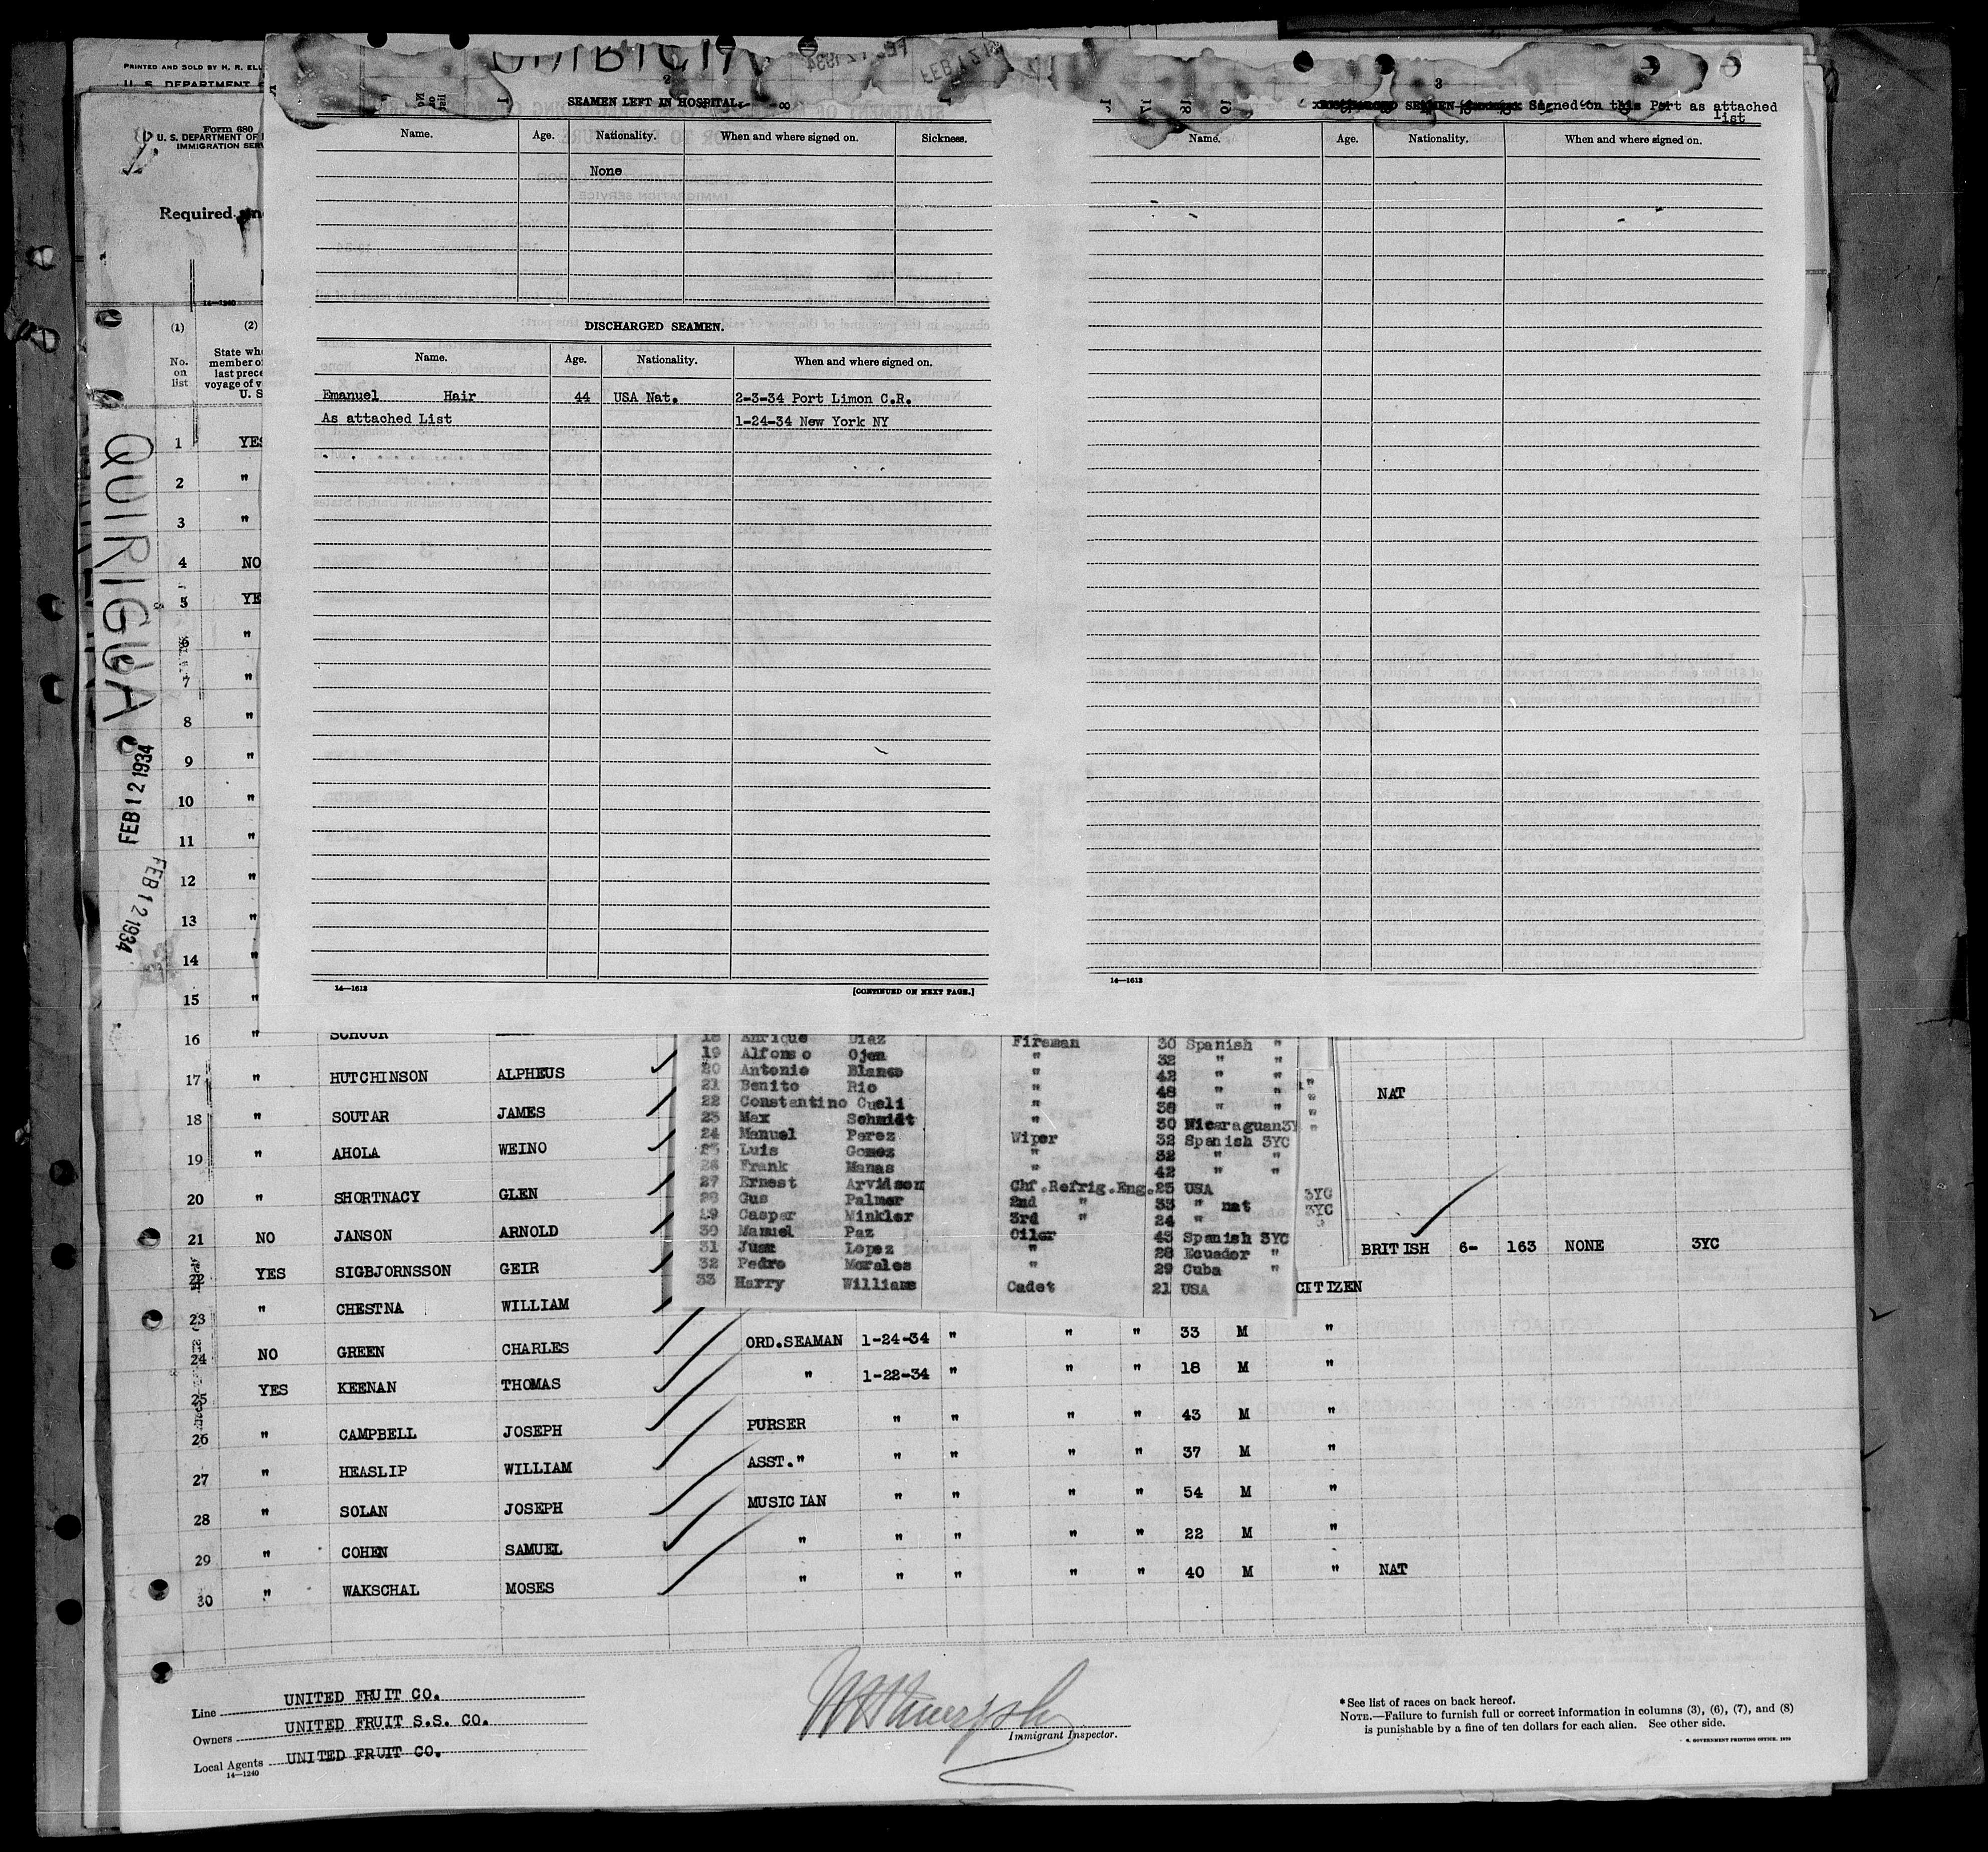 PRINTED AND SOLD BY H. R. ELL
U. S. DEPARTMENT
Form 680
U. S. DEPARTMENT OF
IMMIGRATION SERV
Required
14—1240
(1)
(2)
No.
on
list
State wh
member o
last prece
voyage of v
U. S
QUIRIGUA
FEB 12 1934
FEB 12 1934
1 YES
2 "
3 "
4 NO
5 YE
6 "
7 "
8 "
9 "
10 "
11 "
12 "
13 "
14 "
15 "
2
SEAMEN LEFT IN HOSPITAL.
Name. Age. Nationality. When and where signed on. Sickness.
None
DISCHARGED SEAMEN.
Name. Age. Nationality. When and where signed on.
Emanuel Hair 44 USA Nat. 2-3-34 Port Limon C.R.
As attached List 1-24-34 New York NY
14—1613
[CONTINUED ON NEXT PAGE.]
3
SEAMEN Signed on this Port as attached
list
Name. Age. Nationality. When and where signed on.
14—1613
18 Enrique Diaz Fireman 30 Spanish "
19 Alfonso Ojea " 32 " "
20 Antonio Blanco " 42 " "
21 Benito Rio " 48 " "
22 Constantino Cueli " 38 " "
23 Max Schmidt " 30 Nicaraguan3Y
24 Manuel Perez Wiper 32 Spanish 3YC
25 Luis Gomez " 32 " "
26 Frank Manas " 42 " "
27 Ernest Arvidson Chf.Refrig.Eng. 25 USA
28 Gus Palmer 2nd " 33 " nat
29 Casper Winkler 3rd " 24 "
30 Manuel Paz Oiler 43 Spanish 3YC
31 Juan Lopez " 28 Ecuador "
32 Pedro Morales " 29 Cuba "
33 Harry Williams Cadet 21 USA
3YC
3YC
16 " SCHOOR
17 " HUTCHINSON ALPHEUS NAT
18 " SOUTAR JAMES
19 " AHOLA WEINO
20 " SHORTNACY GLEN
21 NO JANSON ARNOLD BRITISH 6- 163 NONE 3YC
22 YES SIGBJORNSSON GEIR CITIZEN
23 " CHESTNA WILLIAM
24 NO GREEN CHARLES ORD.SEAMAN 1-24-34 " " " 33 M "
25 YES KEENAN THOMAS " 1-22-34 " " " 18 M "
26 " CAMPBELL JOSEPH PURSER " " " " 43 M "
27 " HEASLIP WILLIAM ASST." " " " " 37 M "
28 " SOLAN JOSEPH MUSICIAN " " " " 54 M "
29 " COHEN SAMUEL " " " " " 22 M "
30 " WAKSCHAL MOSES " " " " " 40 M " NAT
Line UNITED FRUIT CO.
Owners UNITED FRUIT S.S. CO.
Local Agents UNITED FRUIT CO.
14—1240
Immigrant Inspector.
*See list of races on back hereof.
NOTE.—Failure to furnish full or correct information in columns (3), (6), (7), and (8)
is punishable by a fine of ten dollars for each alien. See other side.
GOVERNMENT PRINTING OFFICE